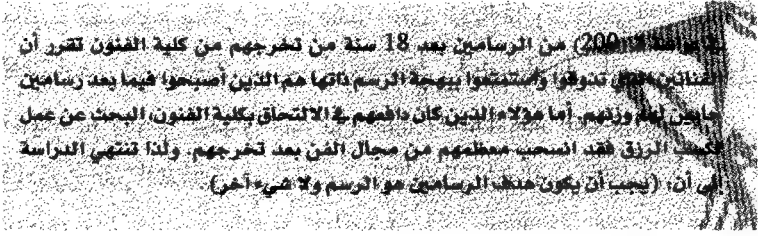 في دراسة لـ (200) من الرسامين بعد 18 سنة من تخرجهم من كلية الفنون تقرر أن
الفنانين الذين تذوقوا واستمتعوا ببهجة الرسم ذاتها هم الذين أصبحوا فيما بعد رسامين
لهم وزنهم. أما هؤلاء الذين كان دافعهم في الالتحاق بكلية الفنون، البحث عن عمل
لكسب الرزق فقد انسحب معظمهم من مجال الفن بعد تخرجهم. ولذا تنتهي الدراسة
إلى أن: (يجب أن يكون هدف الرسامين هو الرسم ولا شيء آخر).